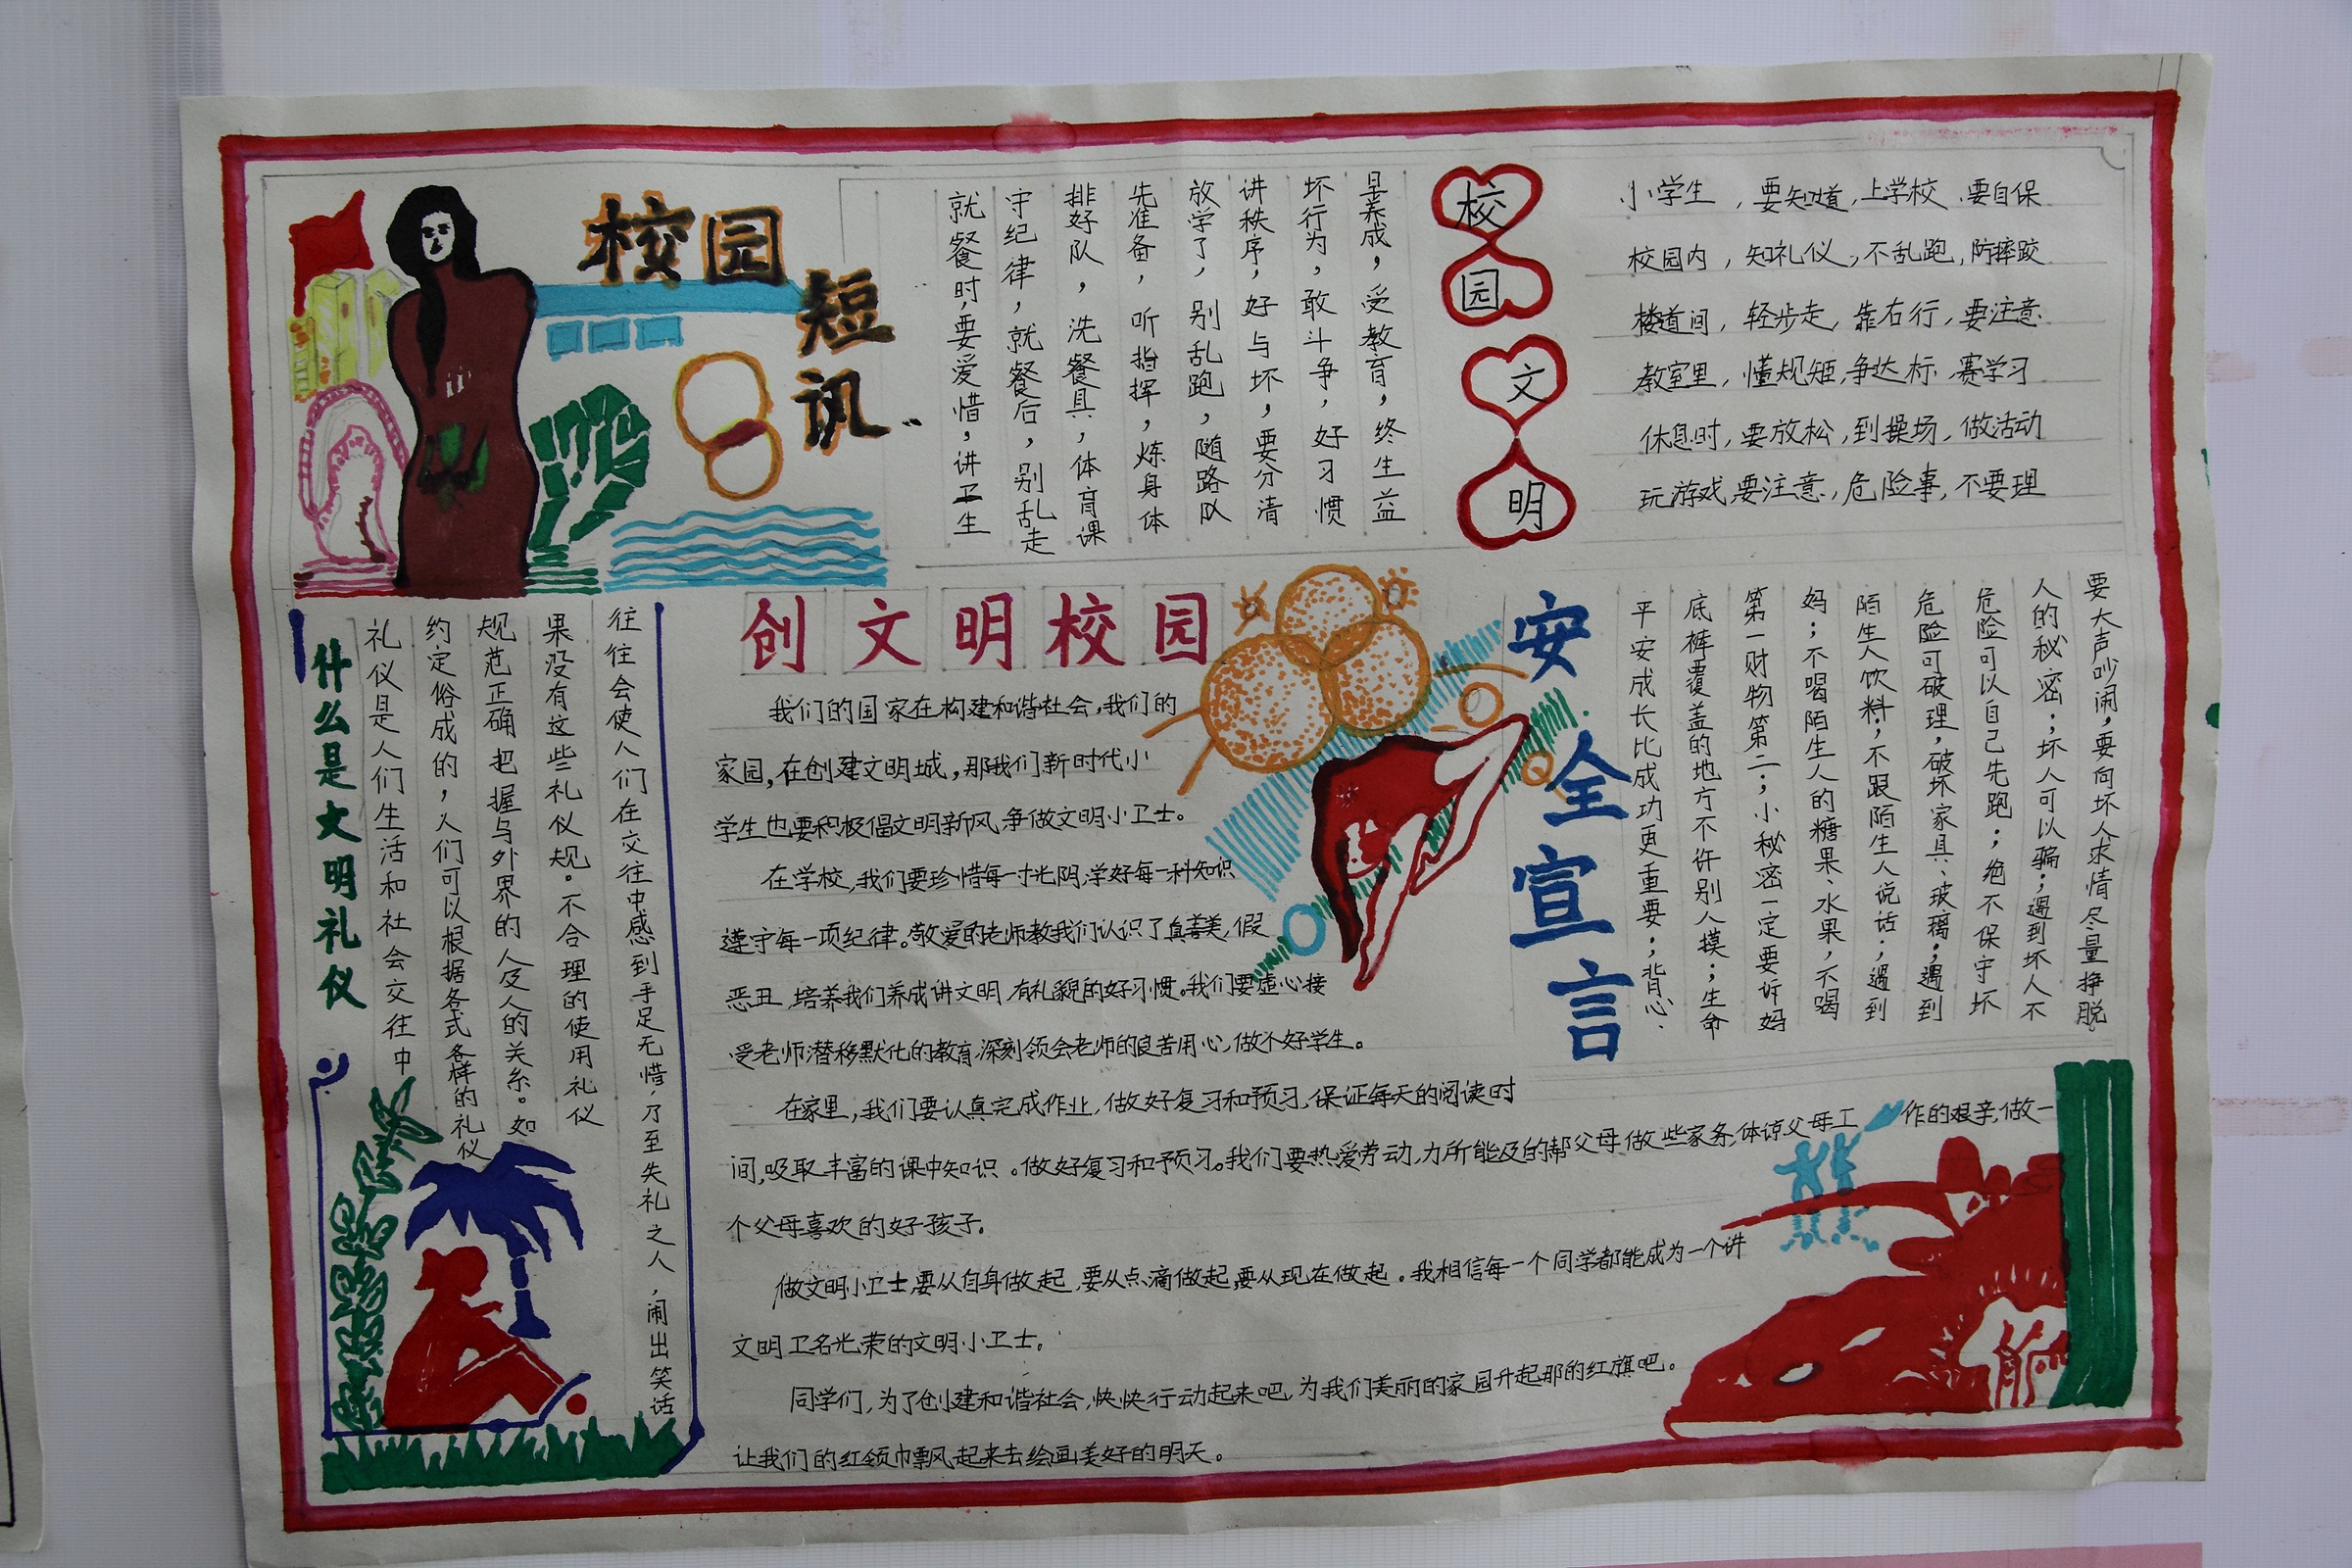 校园
短讯
就餐时,要爱惜,讲卫生
守纪律,就餐后,别乱走
排好队,洗餐具,体育课
先准备,听指挥,炼身体
放学了,别乱跑,随路队
讲秩序,好与坏,要分清
坏行为,敢斗争,好习惯
早养成,受教育,终生益
校园文明
小学生,要知道,上学校,要自保
校园内,知礼仪,不乱跑,防摔跤
楼道间,轻步走,靠右行,要注意
教室里,懂规矩,争达标,赛学习
休息时,要放松,到操场,做活动
玩游戏,要注意,危险事,不要理
什么是文明礼仪
礼仪是人们生活和社会交往中
约定俗成的,人们可以根据各式各样的礼仪
规范正确把握与外界的人及人的关系。如
果没有这些礼仪规。不合理的使用礼仪
往往会使人们在交往中感到手足无惜,乃至失礼之人,闹出笑话
创文明校园
我们的国家在构建和谐社会,我们的
家园,在创建文明城,那我们新时代小
学生也要积极倡文明新风,争做文明小卫士。
在学校,我们要珍惜每一寸光阴,学好每一科知识
遵守每一项纪律。敬爱的老师教我们认识了真善美,假
恶丑,培养我们养成讲文明,有礼貌的好习惯。我们要虚心接
受老师潜移默化的教育,深刻领会老师的良苦用心,做个好学生。
在家里,我们要认真完成作业,做好复习和预习,保证每天的阅读时
间,吸取丰富的课中知识。做好复习和予预习。我们要热爱劳动,力所能及的帮父母做些家务,体谅父母工作的艰辛,做一
个父母喜欢的好孩子。
做文明小卫士,要从自身做起,要从点滴做起,要从现在做起。我相信每一个同学都能成为一个讲
文明卫名光荣的文明小卫士。
同学们,为了创建和谐社会,快快行动起来吧,为我们美丽的家园升起那的红旗吧。
让我们的红领巾飘风起来去绘画美好的明天。
安全宣言
平安成长比成功更重要;背心、
底裤覆盖的地方不许别人摸;生命
第一财物第二;小秘密一定要诉妈
妈;不喝陌生人的糖果、水果,不喝
陌生人饮料;不跟陌生人说话;遇到
危险可破理,破坏家具、玻璃;遇到
危险可以自己先跑;绝不保守坏
人的秘密;坏人可以骗;遇到坏人不
要大声吵闹,要向坏人求情尽量挣脱